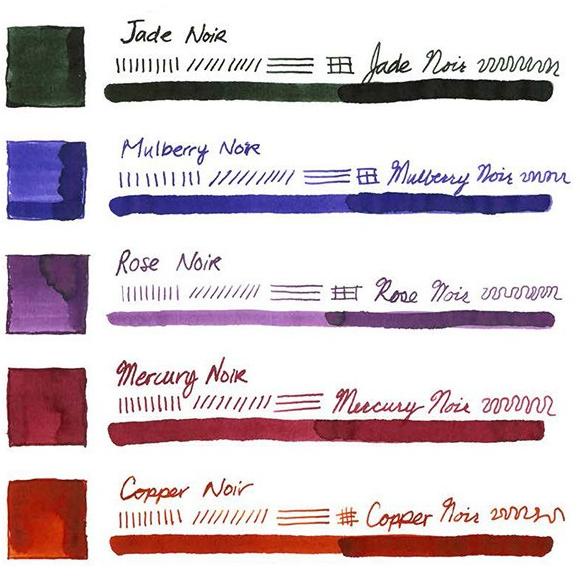 Jade Noir
Jade Noir
Mulberry Noir
Mulberry Noir
Rose Noir
Rose Noir
Mercury Noir
Mercury Noir
Copper Noir
Copper Noir